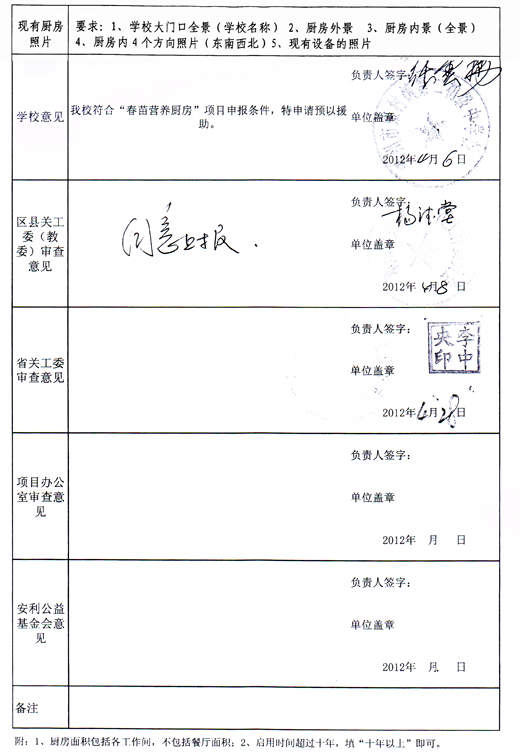 现有厨房照片
要求：1、学校大门口全景（学校名称） 2、厨房外景 3、厨房内景（全景）
4、厨房内4个方向照片（东南西北）5、现有设备的照片
学校意见
我校符合“春苗营养厨房”项目申报条件，特申请预以援
助。
负责人签字：
单位盖章
2012年4月6日
区县关工
委（教
委）审查
意见
同意上报.
负责人签字：
单位盖章
2012年4月8日
省关工委
审查意见
负责人签字：
李中央印
单位盖章
2012年6月28日
项目办公
室审查意
见
负责人签字：
单位盖章
2012年 月 日
安利公益
基金会意
见
负责人签字：
单位盖章
2012年 月 日
备注
附：1、厨房面积包括各工作间，不包括餐厅面积；2、启用时间超过十年，填“十年以上”即可。